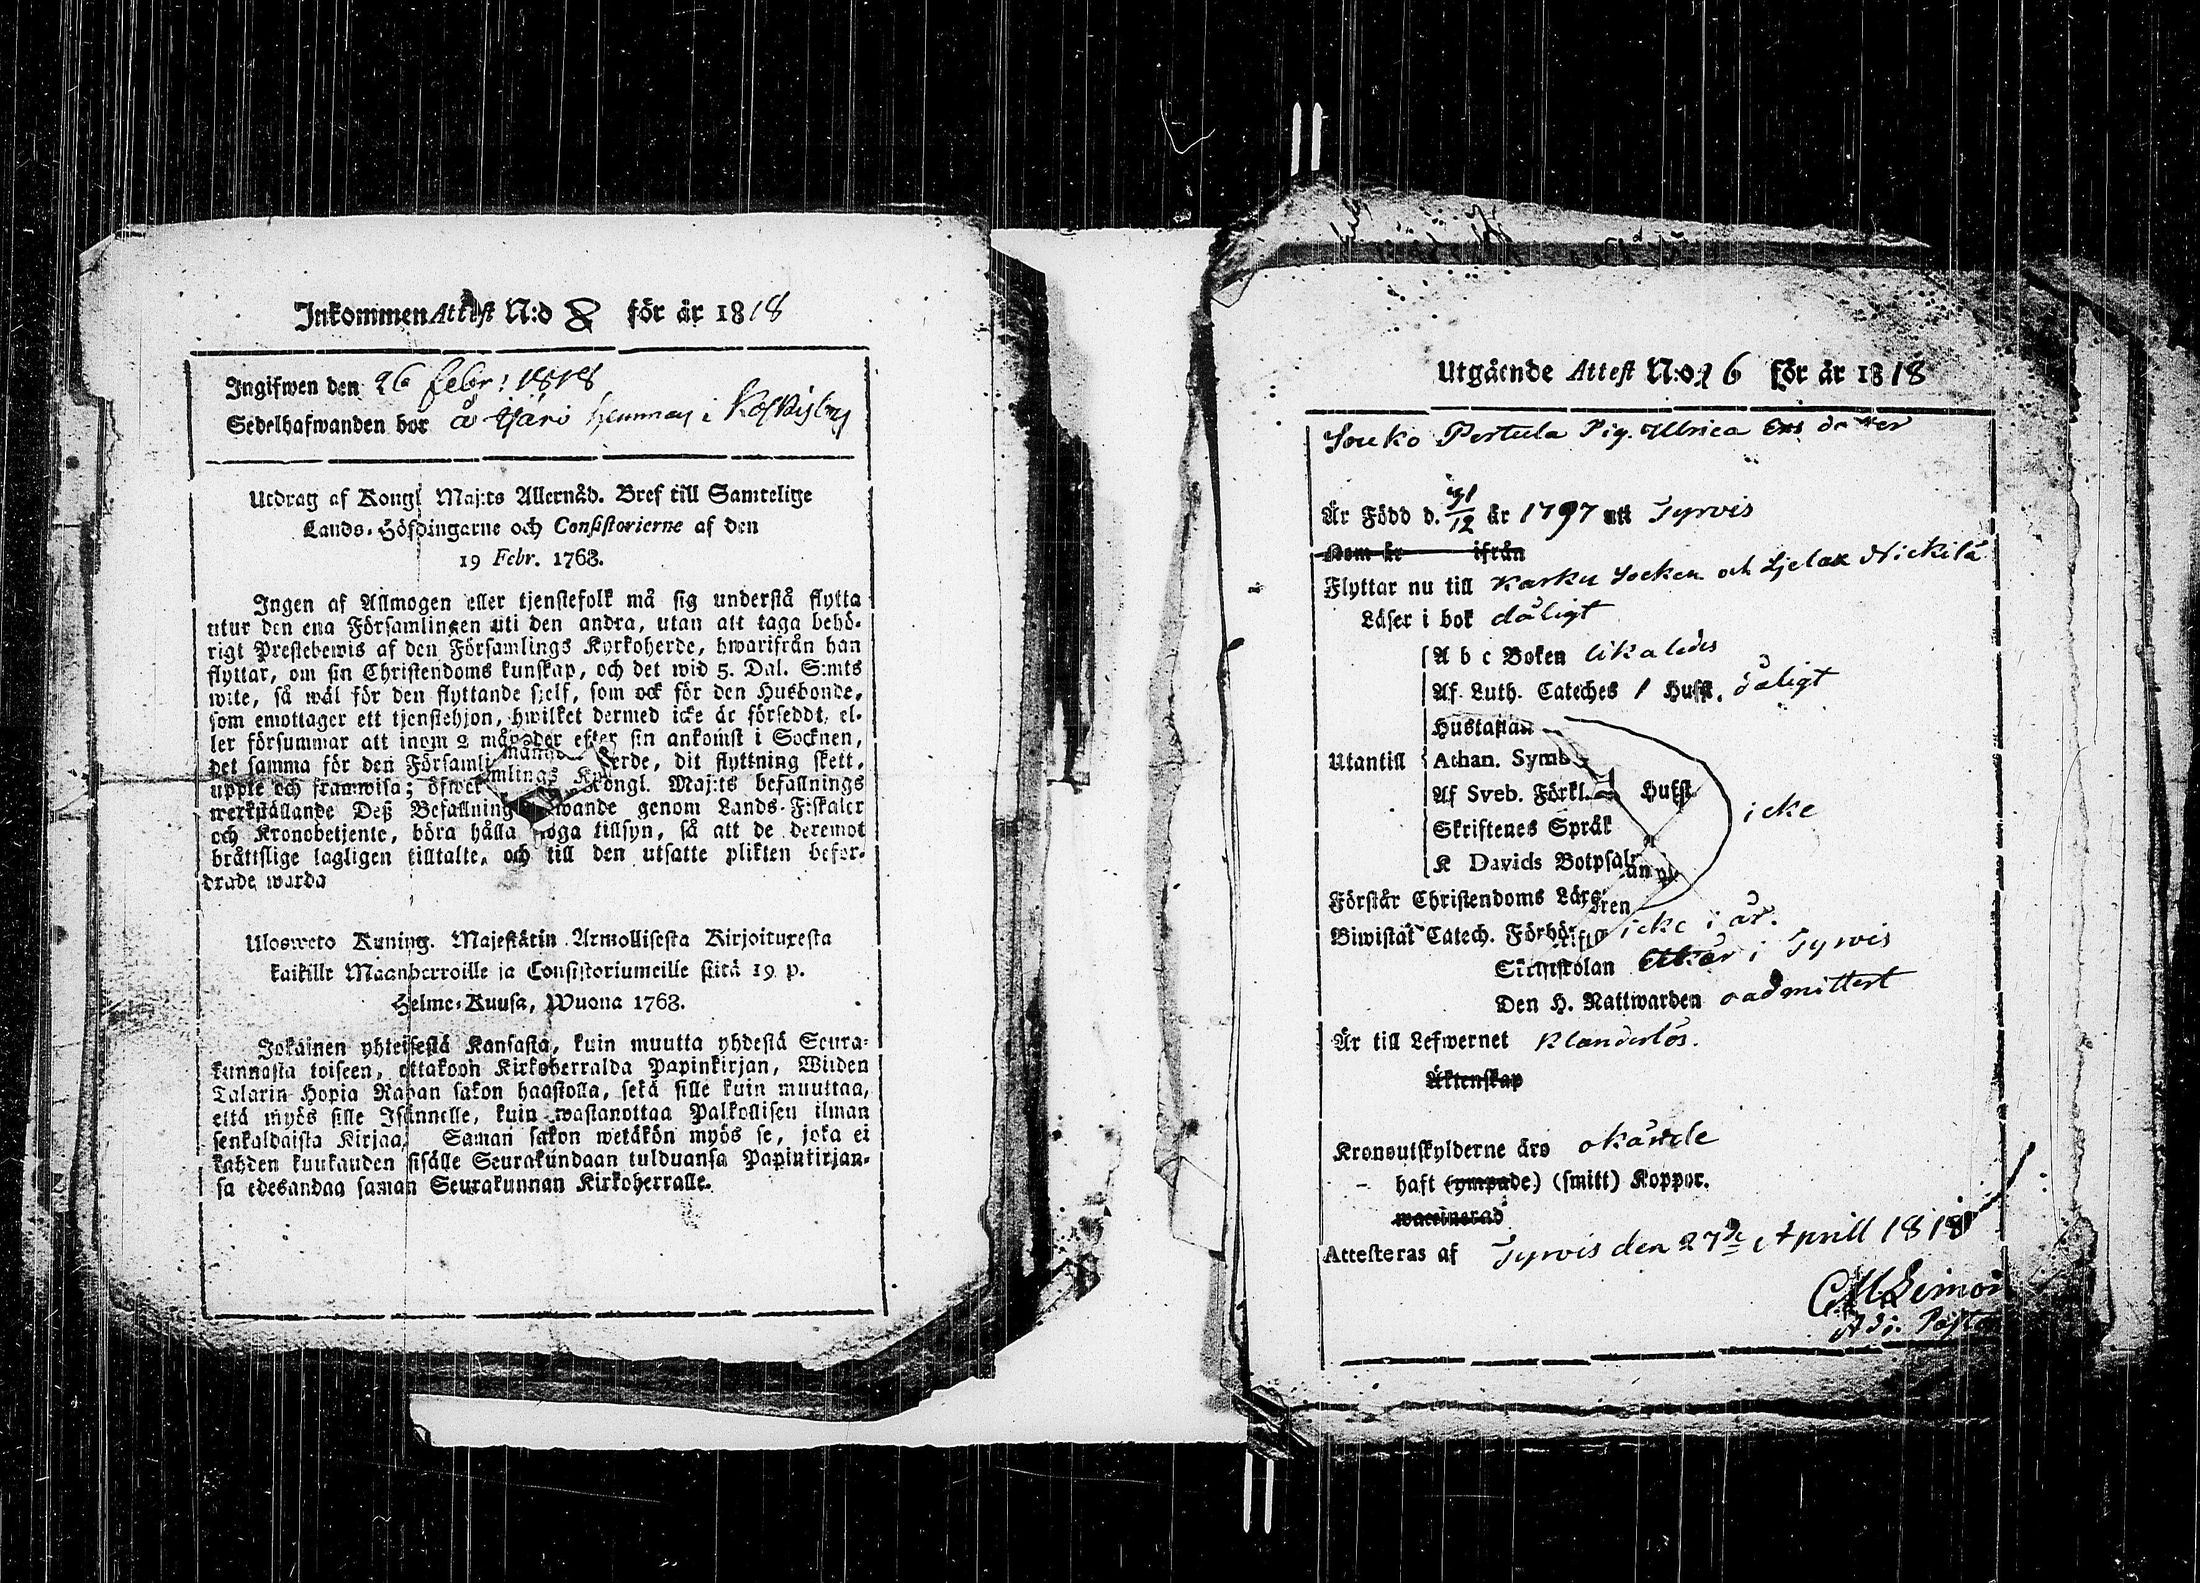 Inkommen Attest N:o 8 för år 1818
Ingifwen den 26 febr: 1818
Sedelhafwanden bor å Jjäri hemman i Koskisby
Utdrag af Kongl Maj:ts Allernåd. Bref till Samtelige
Lands-Höfdingarne och Consistorierne af den
19 Febr. 1768.
Ingen af Allmogen eller tjenstefolk må sig understå flytta
utur den ena Församlingen uti den andra, utan att taga behö-
rigt Prestebewis af den Församlings Kyrkoherde, hwarifrån han
flyttar, om sin Christendoms kunskap, och det wid 5. Dal. S:mts
wite, så wäl för den flyttande sjelf, som ock för den Husbonde,
som emottager ett tjenstehjon, hwilket dermed icke är försedt, el-
ler försummar att inom 2 månader efter sin ankomst i Socknen,
det samma för den Församlings
erde, dit flyttning skett,
uppte och framwisa; öfwer
Kongl. Maj:ts befallnings
werkställande Deß Befallning
wande genom Lands-Fiskaler
och Kronobetjente, böra hålla noga tillsyn, så att de deremot
bråttslige lagligen tilltalte, och till den utsatte plikten befor-
drade warda
Ulosweto Kuning. Majestätin Armollisesta Kirjoituxesta
kaikille Maanherroille ja Consistoriumeille siitä 19 p.
Helme-Kuusa, Wuona 1768.
Jokainen yhteisestä Kansasta, kuin muutta yhdestä Seura-
kunnasta toiseen, ottakoon Kirkoherralda Papinkirjan, Wiiden
Talarin Hopia Rahan sakon haastolla, sekä sille kuin muuttaa,
että myös sille Isännelle, kuin wastanottaa Palkollisen ilman
senkaldaista Kirjaa. Saman sakon wetäkön myös se, joka ei
kahden kuukauden sisälle Seurakundaan tulduansa Papinkirjan-
sa edesandaa saman Seurakunnan Kirkoherralle.
Utgående Attest N:o 26 för år 1818
Souko Pertula Pig. Ulrica Ers dotter
Är Född d. 31/12 år 1797 uti Tyrvis
Kom år ifrån
Flyttar nu till Karku Socken och Hickilä
Läser i bok dåligt
A b c Boken likaledes
Af Luth. Cateches 1 Hufst. dåligt
Hustaflan
Utantill Athan. Symb
Af Sveb. Förkl. Hufst
Skriftenes Språk
K Davids Botpsalm
icke
Förstår Christendoms Läro
Biwistat Catech. Förhör icke i år.
Skriftskolan i Tyrvis
Den H. Nattwarden oadmittert
Är till Lefwernet Klanderlös.
Äktenskap
Kronoutskylderne äro okände
haft (ympade) (smitt) Koppor.
waccinerad
Attesteras af Tyrvis den 27de Aprill 1818
C M Simon
Adj. Past